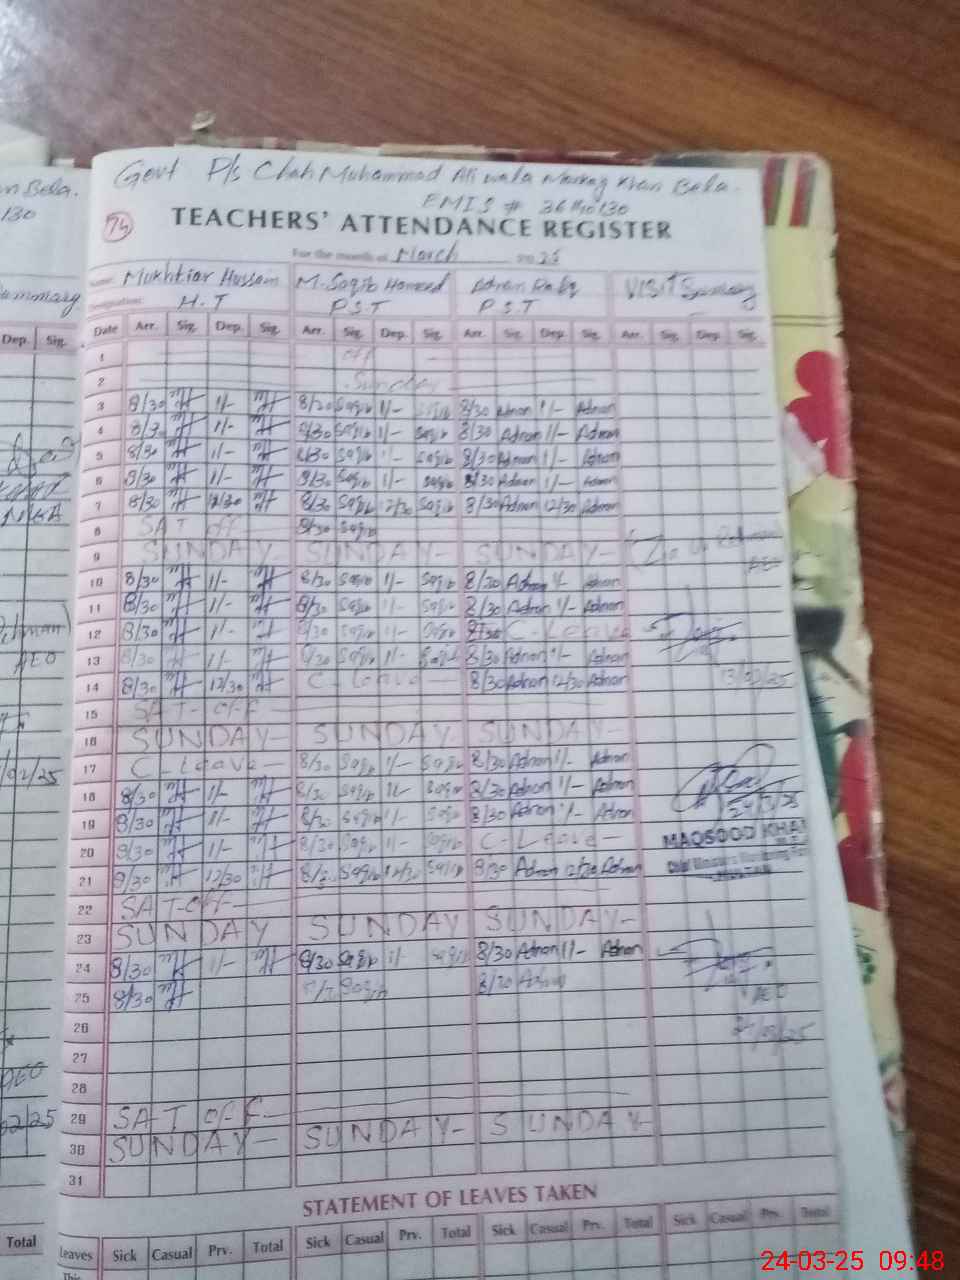 Govt P/s Chah Muhammad Ali wala Markaz Khan Bela.
EMIS # 36110130
74
TEACHERS' ATTENDANCE REGISTER
For the month of March 25
Name: Mukhtiar Hussain M. Saqib Hameed Adnan VISIT Summary
Designation: H.T P.S.T P.S.T
Date Arr. Sig. Dep. Sig. Arr. Sig. Dep. Sig. Arr. Sig. Dep. Sig. Arr. Sig. Dep. Sig.
1 off
2 Sunday
3 8/30 1/- 8/30 Saqib 1/- Saqib 8/30 Adnan 1/- Adnan
4 8/30 1/- 8/30 Saqib 1/- Saqib 8/30 Adnan 1/- Adnan
5 8/30 1/- 8/30 Saqib 1/- Saqib 8/30 Adnan 1/- Adnan
6 8/30 1/- 8/30 Saqib 1/- Saqib 8/30 Adnan 1/- Adnan
7 8/30 12/30 8/30 Saqib 12/30 Saqib 8/30 Adnan 12/30 Adnan
8 SAT off 8/30 Saqib
9 SUNDAY- SUNDAY- SUNDAY-
10 8/30 1/- 8/30 Saqib 1/- Saqib 8/30 Adnan 1/- Adnan
11 8/30 1/- 8/30 Saqib 1/- Saqib 8/30 Adnan 1/- Adnan
12 8/30 1/- 8/30 Saqib 1/- Saqib 8/30 C-Leave
13 8/30 1/- 8/30 Saqib 1/- Saqib 8/30 Adnan 1/- Adnan
14 8/30 12/30 C-Leave 8/30 Adnan 12/30 Adnan 13/03/25
15 SAT-off
16 SUNDAY- SUNDAY SUNDAY-
17 C-Leave- 8/30 Saqib 1/- Saqib 8/30 Adnan 1/- Adnan
18 8/30 1/- 8/30 Saqib 1/- Saqib 8/30 Adnan 1/- Adnan
19 8/30 1/- 8/30 Saqib 1/- Saqib 8/30 Adnan 1/- Adnan
20 8/30 1/- 8/30 Saqib 1/- Saqib C-Leave- MAQSOOD KHAN
21 8/30 12/30 8/30 Saqib 12/30 Saqib 8/30 Adnan 12/30 Adnan
22 SAT-off-
23 SUNDAY SUNDAY SUNDAY-
24 8/30 1/- 8/30 Saqib 1/- Saqib 8/30 Adnan 1/- Adnan
25 8/30 Saqib 8/30 Adnan AEO
26
27
28
29 SAT off
30 SUNDAY- SUNDAY- SUNDAY-
31
STATEMENT OF LEAVES TAKEN
Leaves Sick Casual Prv. Total Sick Casual Prv. Total Sick Casual Prv. Total Sick Casual Prv. Total
This
Bela.
130
Summary
Dep. Sig.
AEO
02/25
AEO
02/25
Total
24-03-25 09:48